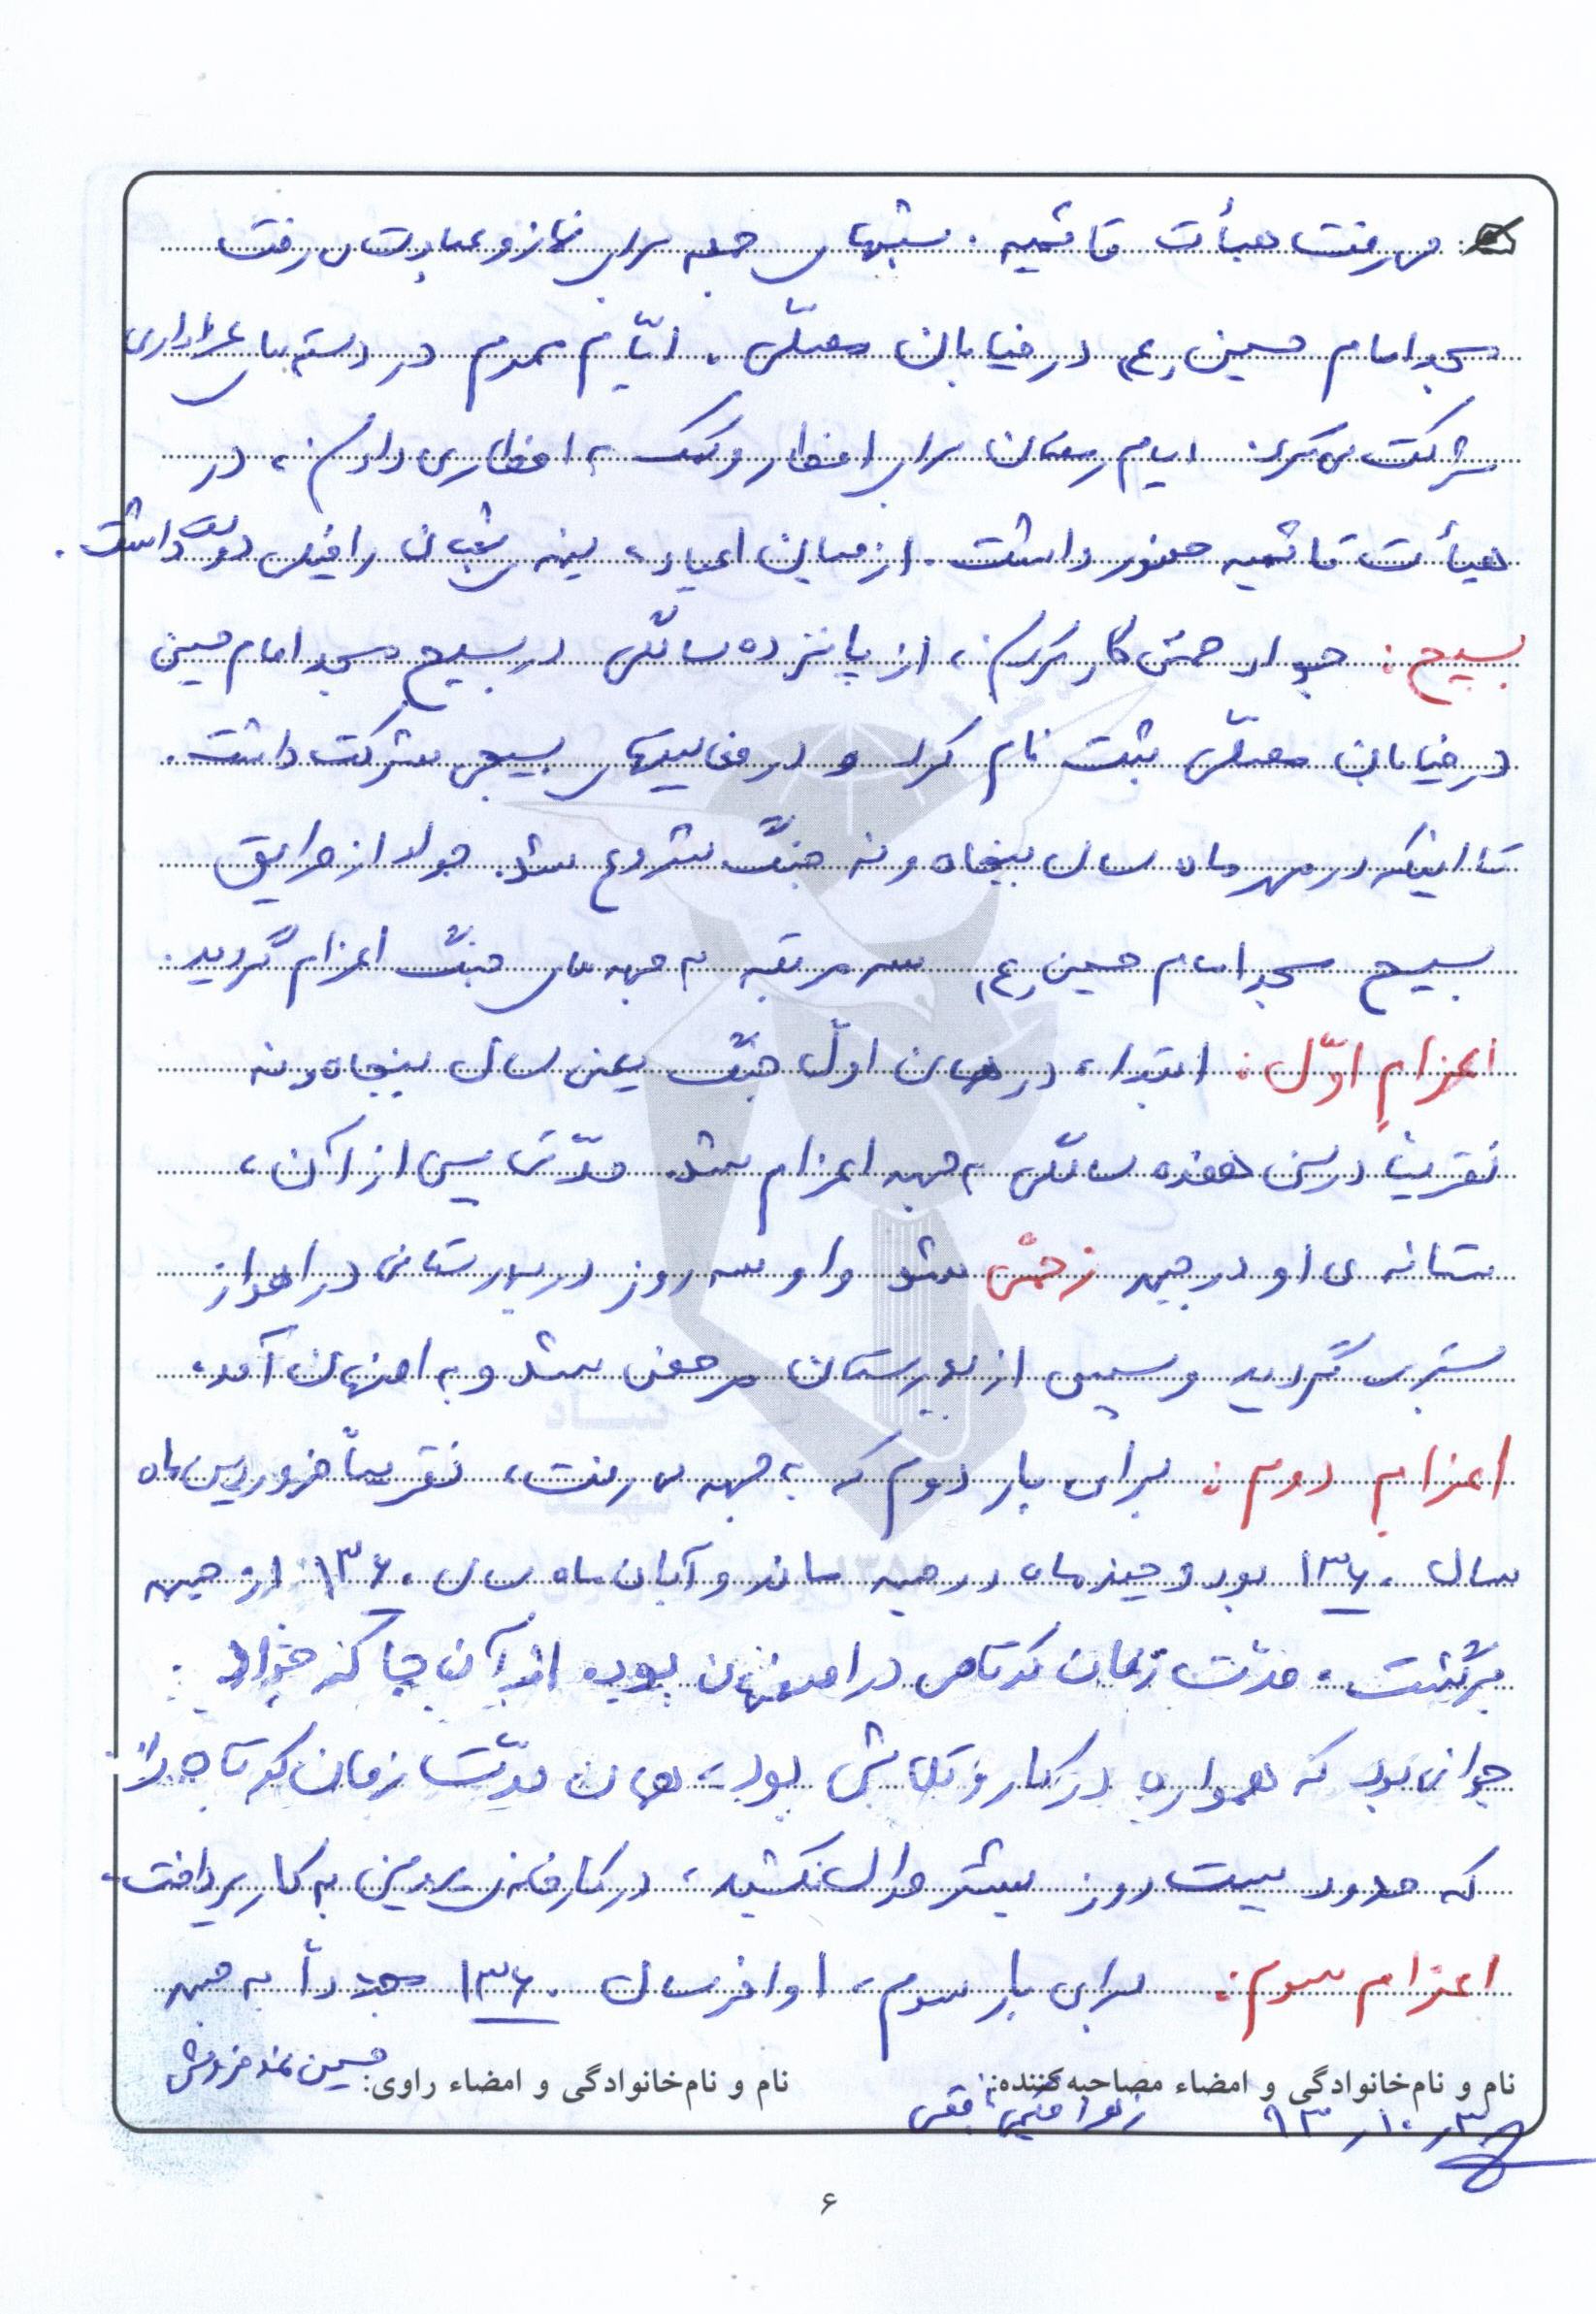 می رفت هیأت قائمیه. شبهای جمعه برای نماز و عبادت می رفت
مسجد امام حسین (ع) در خیابان مصلّی. ایّام محرم در دسته های عزاداری
شرکت می کرد. ایام رمضان برای افطار و کمک به افطاری دادن، در
هیأت قائمیه حضور داشت. از میان اعیاد، نیمه شعبان را خیلی دوست داشت.
بسیج: جواد حین کار کردن، از پانزده سالگی در بسیج مسجد امام حسین
در خیابان مصلّی ثبت نام کرد و در فعالیتهای بسیجی شرکت داشت.
تا اینکه در مهر ماه سال پنجاه و نه جنگ شروع شد. جواد از طریق
بسیج مسجد امام حسین (ع) سه مرتبه به جبهه های جنگ اعزام گردید.
اعزام اوّل: ابتدا، در همان اوّل جنگ یعنی سال پنجاه و نه
تقریباً در سن هفده سالگی به جبهه اعزام شد. مدّتی پس از آن،
شانه ی او در جبهه زخمی شد و او سه روز در بیمارستانی در اهواز
بستری گردید و سپس از بیمارستان مرخص شد و به اصفهان آمد.
اعزام دوم: برای بار دوم که به جبهه می رفت، تقریباً فروردین ماه
سال ۱۳۶۰ بود و چند ماه در جبهه ماند و آبان ماه سال ۱۳۶۰ از جبهه
برگشت. مدّت زمان کوتاهی در اصفهان بود. از آن جا که جواد
جوانی بود که همواره در کار و تلاش بود، همان مدّت زمان کوتاه را
که حدود بیست روز بیشتر طول نکشید، در کارخانه ی به کار پرداخت.
اعزام سوم: برای بار سوم، اواخر سال ۱۳۶۰ مجدداً به جبهه
نام و نام‌خانوادگی و امضاء مصاحبه کننده: زهرا
نام و نام‌خانوادگی و امضاء راوی: حسین نمد فروش
۹۳٫۱۰٫۳
۶